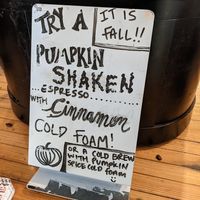 TRY A
IT IS
FALL!!
PUMPKIN
SHAKEN
...ESPRESSO......
WITH Cinnamon
COLD FOAM!
OR A COLD BREW
WITH PUMPKIN
SPICE COLD FOAM